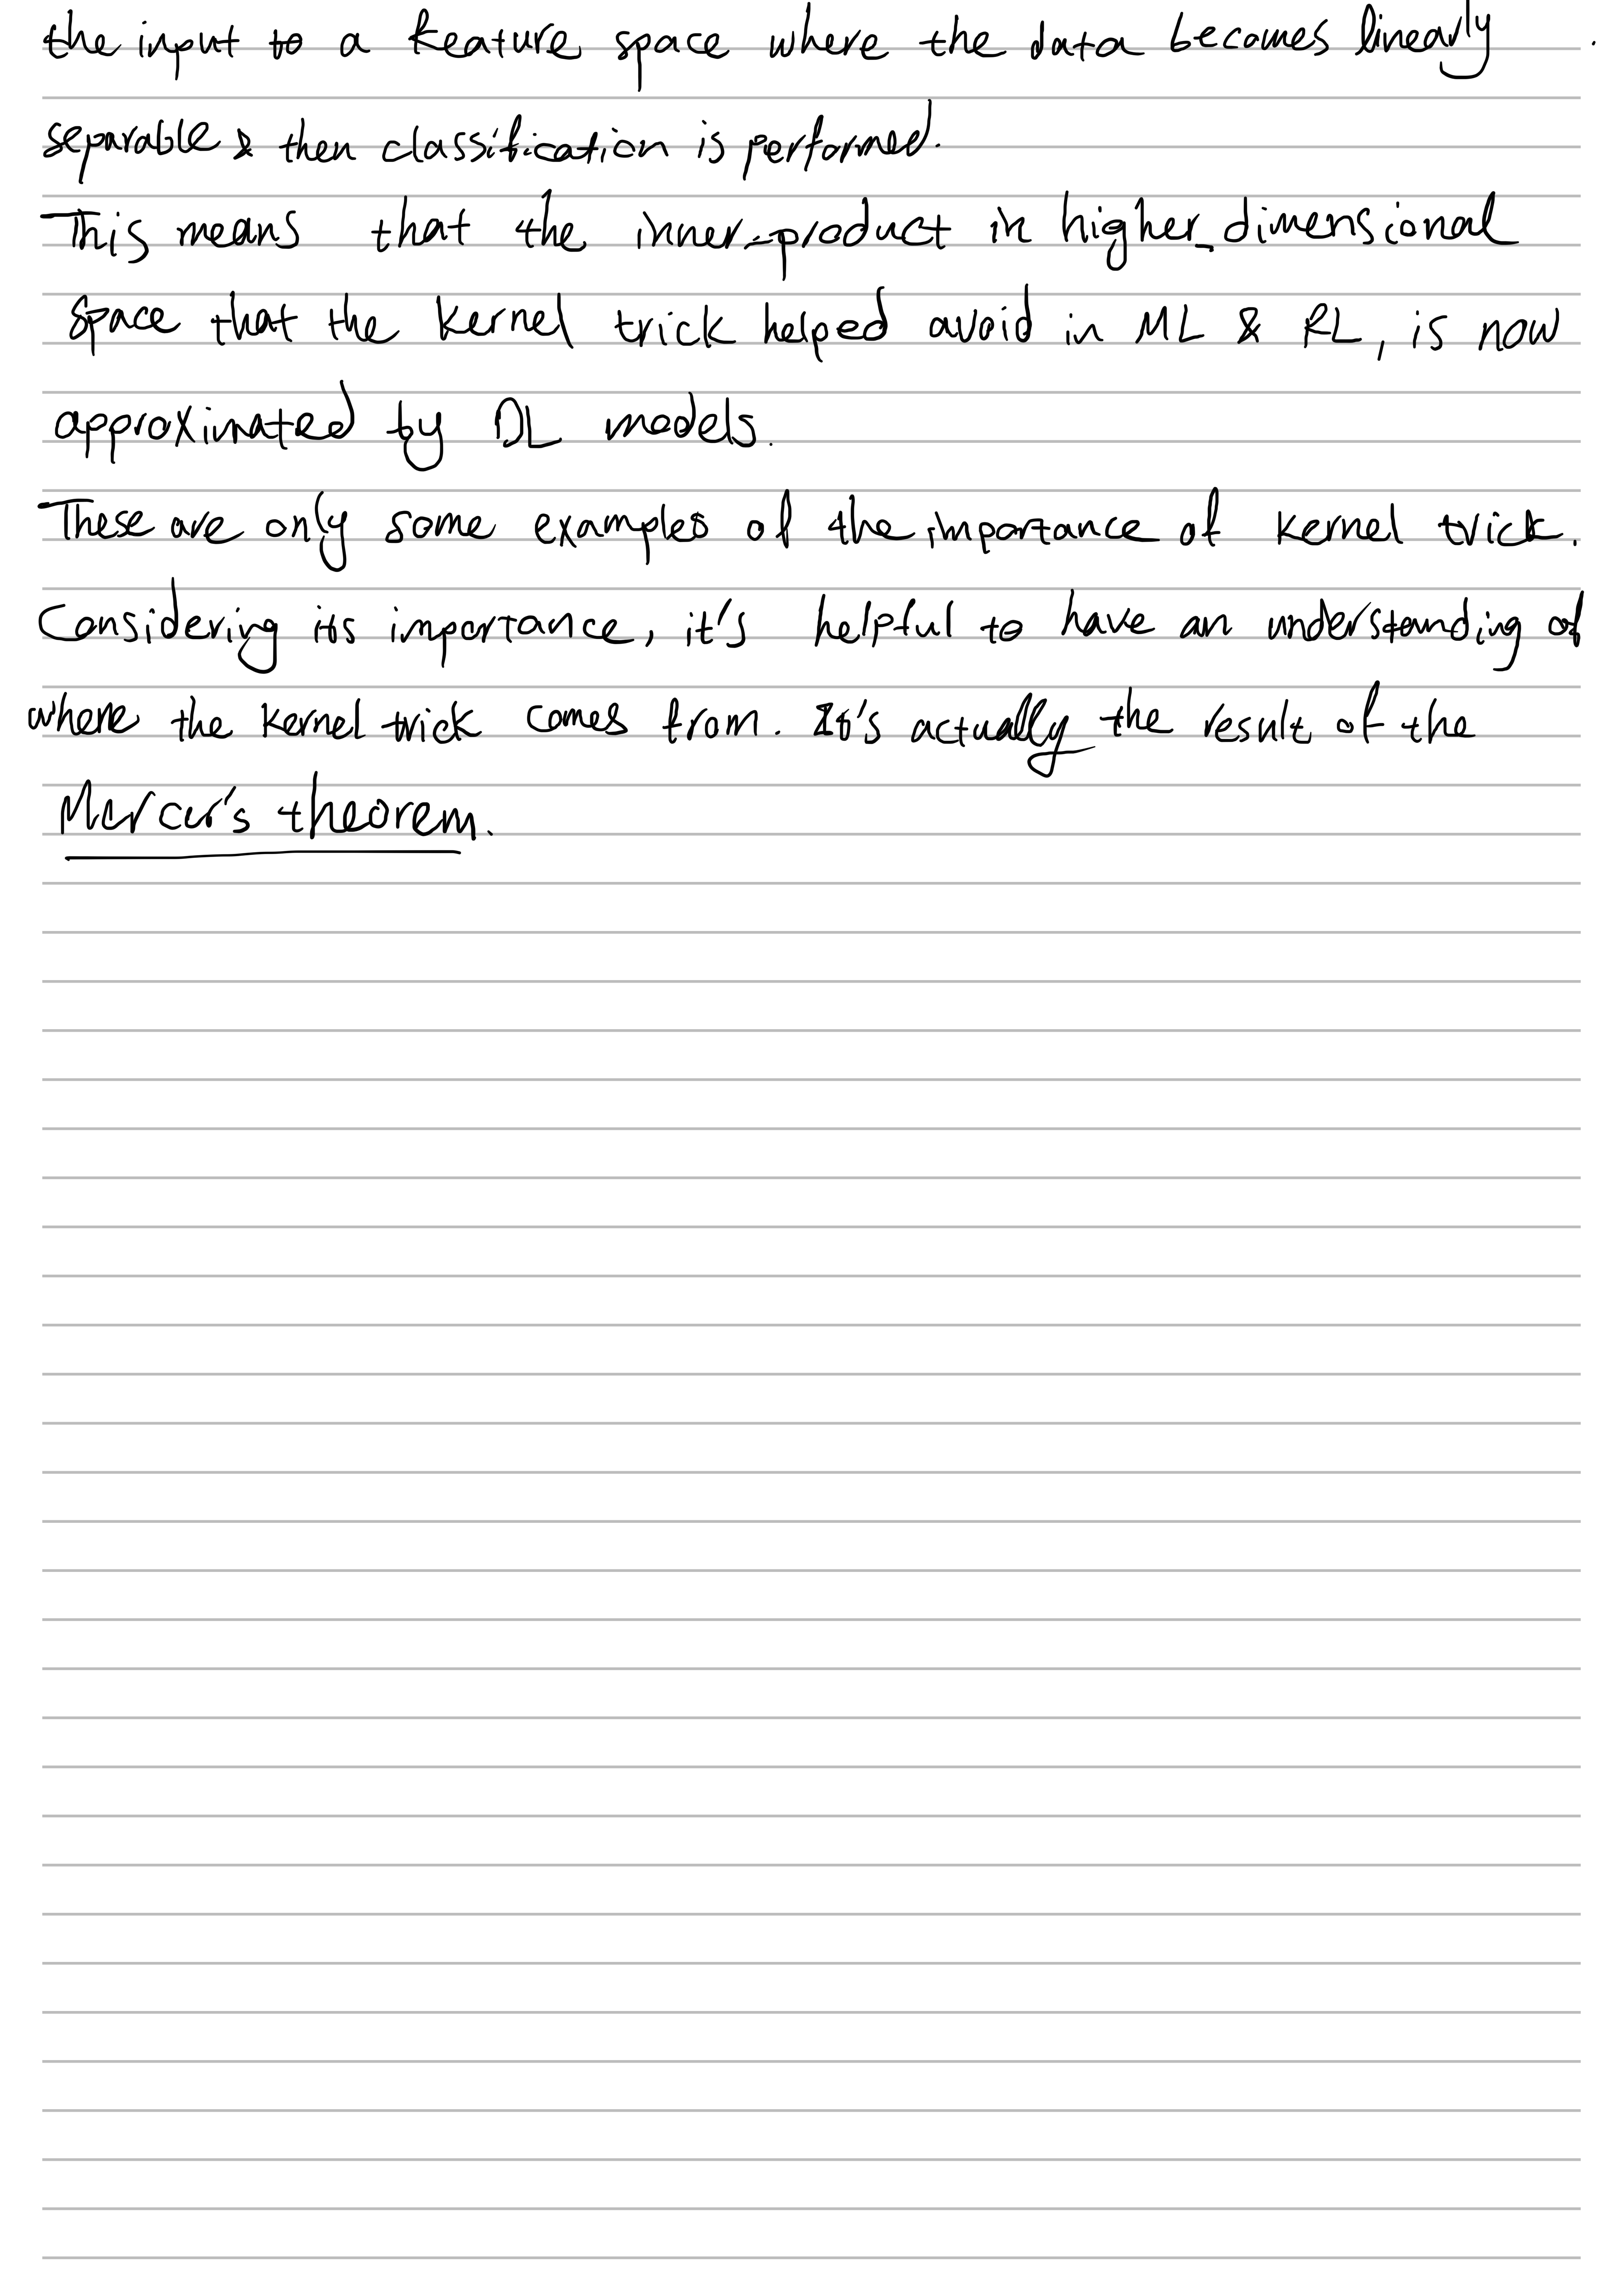 the input to a feature space where the data becomes linearly
separable & then classification is performed.
This means that the inner-product in higher-dimensional
space that the kernel trick helped avoid in ML & RL, is now
approximated by DL models.
These are only some examples of the importance of kernel trick.
Considering its importance, it's helpful to have an understanding of
where the kernel trick comes from. It's actually the result of the
Mercer's theorem.